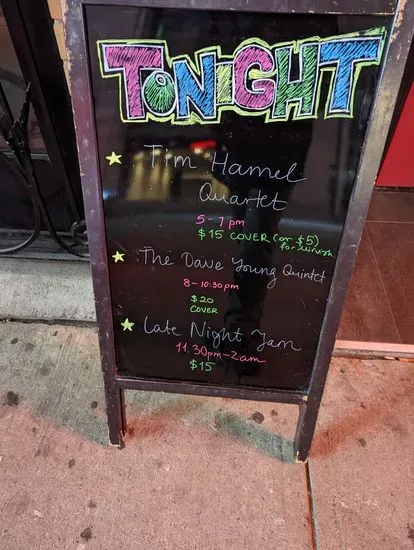 TONIGHT
Tim Hamel
Quartet
5-7 pm
$15 COVER (or $5)
for
The Dave Young Quintet
8-10:30 pm
$20
COVER
Late Night Jam
11.30pm-2am
$15